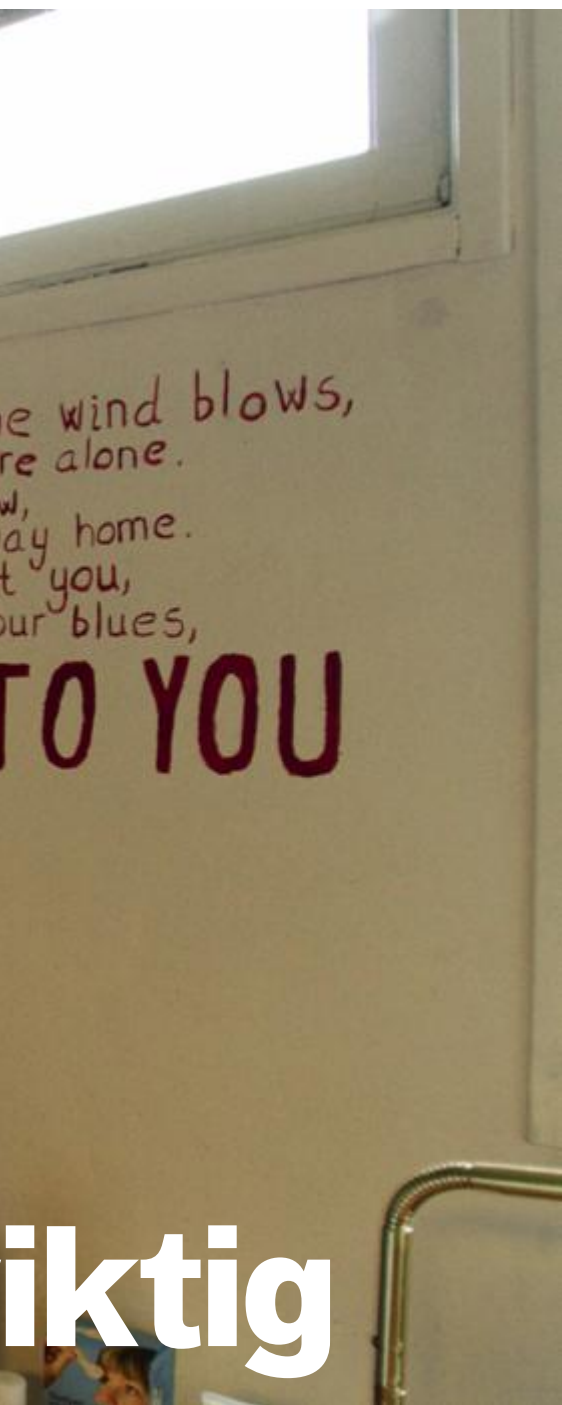 e wind blows,
re alone.
w,
ay home.
t you,
our blues,
TO YOU
iktig